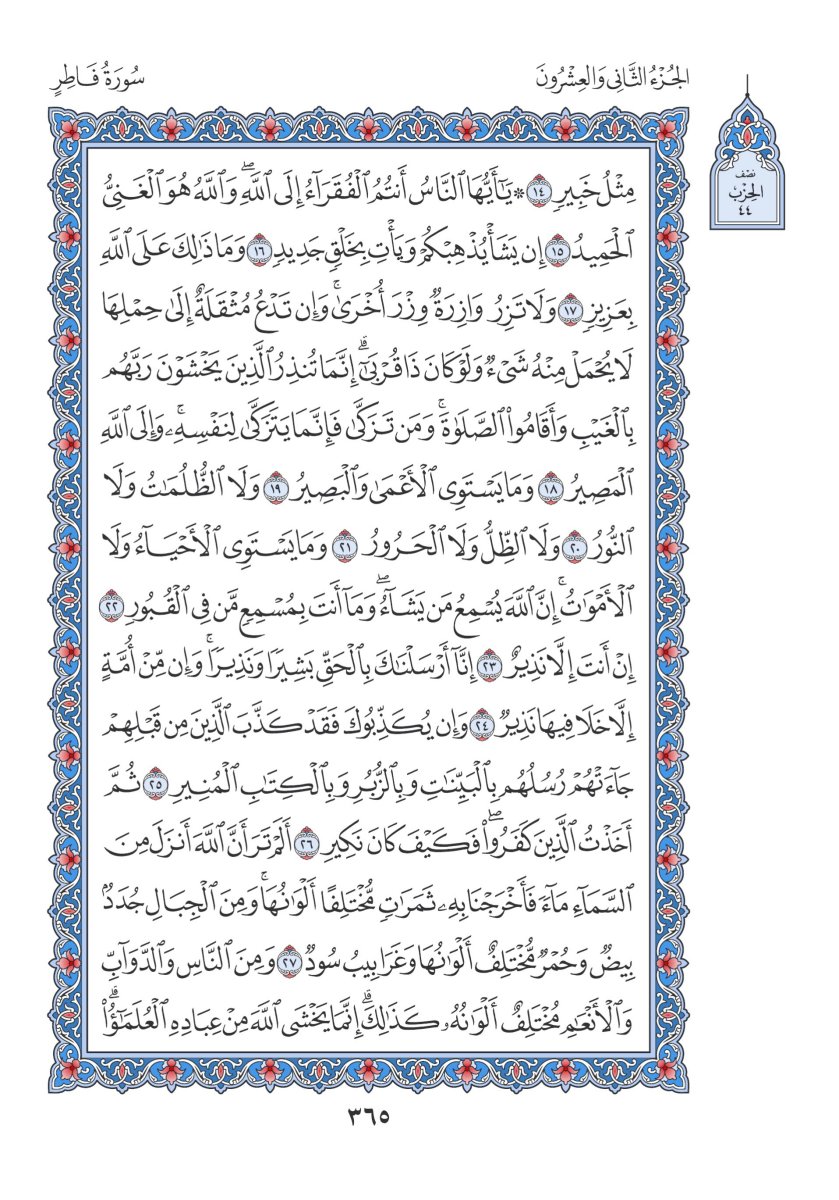 سُورَةُ فَاطِرٍ
الجُزْءُ الثَّانِي وَالعِشْرُونَ
نصف
الحِزْب
٤٤
مِثْلُ خَبِيرٖ ١٤ ۞ يَٰٓأَيُّهَا ٱلنَّاسُ أَنتُمُ ٱلْفُقَرَآءُ إِلَى ٱللَّهِۖ وَٱللَّهُ هُوَ ٱلْغَنِىُّ
ٱلْحَمِيدُ ١٥ إِن يَشَأْ يُذْهِبْكُمْ وَيَأْتِ بِخَلْقٖ جَدِيدٖ ١٦ وَمَا ذَٰلِكَ عَلَى ٱللَّهِ
بِعَزِيزٖ ١٧ وَلَا تَزِرُ وَازِرَةٞ وِزْرَ أُخْرَىٰۚ وَإِن تَدْعُ مُثْقَلَةٌ إِلَىٰ حِمْلِهَا
لَا يُحْمَلْ مِنْهُ شَىْءٞ وَلَوْ كَانَ ذَا قُرْبَىٰٓۗ إِنَّمَا تُنذِرُ ٱلَّذِينَ يَخْشَوْنَ رَبَّهُم
بِٱلْغَيْبِ وَأَقَامُوا۟ ٱلصَّلَوٰةَۚ وَمَن تَزَكَّىٰ فَإِنَّمَا يَتَزَكَّىٰ لِنَفْسِهِۦۚ وَإِلَى ٱللَّهِ
ٱلْمَصِيرُ ١٨ وَمَا يَسْتَوِى ٱلْأَعْمَىٰ وَٱلْبَصِيرُ ١٩ وَلَا ٱلظُّلُمَٰتُ وَلَا
ٱلنُّورُ ٢٠ وَلَا ٱلظِّلُّ وَلَا ٱلْحَرُورُ ٢١ وَمَا يَسْتَوِى ٱلْأَحْيَآءُ وَلَا
ٱلْأَمْوَٰتُۚ إِنَّ ٱللَّهَ يُسْمِعُ مَن يَشَآءُۖ وَمَآ أَنتَ بِمُسْمِعٖ مَّن فِى ٱلْقُبُورِ ٢٢
إِنْ أَنتَ إِلَّا نَذِيرٌ ٢٣ إِنَّآ أَرْسَلْنَٰكَ بِٱلْحَقِّ بَشِيرٗا وَنَذِيرٗاۚ وَإِن مِّنْ أُمَّةٍ
إِلَّا خَلَا فِيهَا نَذِيرٞ ٢٤ وَإِن يُكَذِّبُوكَ فَقَدْ كَذَّبَ ٱلَّذِينَ مِن قَبْلِهِمْ
جَآءَتْهُمْ رُسُلُهُم بِٱلْبَيِّنَٰتِ وَبِٱلزُّبُرِ وَبِٱلْكِتَٰبِ ٱلْمُنِيرِ ٢٥ ثُمَّ
أَخَذْتُ ٱلَّذِينَ كَفَرُوا۟ۖ فَكَيْفَ كَانَ نَكِيرِ ٢٦ أَلَمْ تَرَ أَنَّ ٱللَّهَ أَنزَلَ مِنَ
ٱلسَّمَآءِ مَآءٗ فَأَخْرَجْنَا بِهِۦ ثَمَرَٰتٖ مُّخْتَلِفًا أَلْوَٰنُهَاۚ وَمِنَ ٱلْجِبَالِ جُدَدُۢ
بِيضٞ وَحُمْرٞ مُّخْتَلِفٌ أَلْوَٰنُهَا وَغَرَابِيبُ سُودٞ ٢٧ وَمِنَ ٱلنَّاسِ وَٱلدَّوَآبِّ
وَٱلْأَنْعَٰمِ مُخْتَلِفٌ أَلْوَٰنُهُۥ كَذَٰلِكَۗ إِنَّمَا يَخْشَى ٱللَّهَ مِنْ عِبَادِهِ ٱلْعُلَمَٰٓؤُا۟ۗ
٣٦٥